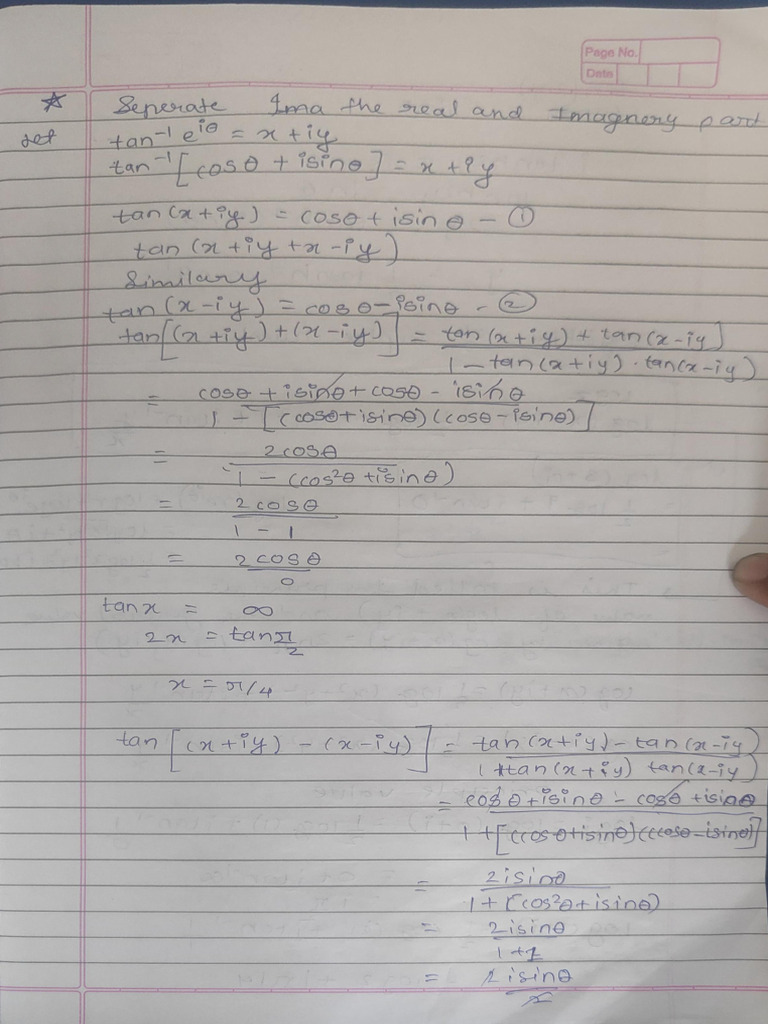 Page No.
Date
☆ Seperate Ima the real and Imagnery part
let tan⁻¹ e^iθ = x + iy
tan⁻¹ [cosθ + isinθ] = x + iy
tan (x + iy) = cosθ + isinθ - ①
tan (x + iy + x - iy)
Similary
tan (x - iy) = cosθ - isinθ - ②
tan [(x + iy) + (x - iy)] = tan (x + iy) + tan (x - iy) / 1 - tan (x + iy) · tan (x - iy)
= cosθ + isinθ + cosθ - isinθ / 1 - [(cosθ + isinθ) (cosθ - isinθ)]
= 2cosθ / 1 - (cos²θ + isinθ)
= 2cosθ / 1 - 1
= 2cosθ / 0
tanx = ∞
2x = tan π/2
x = π/4
tan [(x + iy) - (x - iy)] = tan (x + iy) - tan (x - iy / 1 + tan (x + iy) tan (x - iy
= cosθ + isinθ - cosθ + isinθ / 1 + [(cosθ + isinθ) (cosθ - isinθ)]
= 2isinθ / 1 + [cos²θ + isinθ)
= 2isinθ / 1 + 1
= 2isinθ / 2